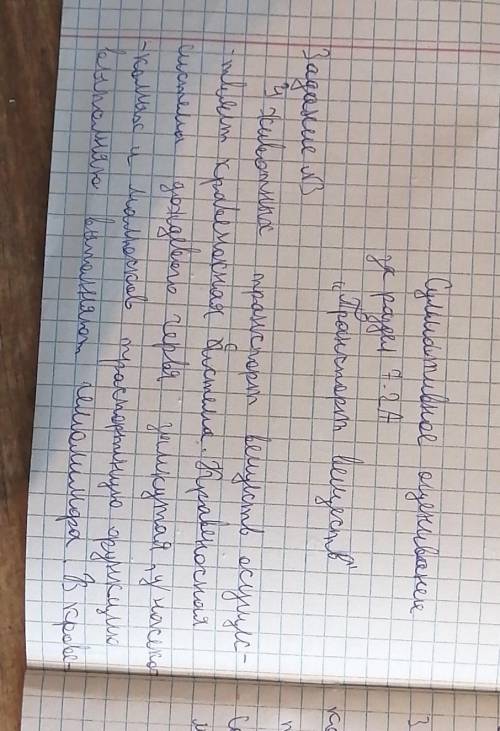 Суммативное оценивание
за раздел 7.2А
"Транспорт веществ"
Задание №3
У животных транспорт веществ осущес-
твляет кровеносная система. Кровеносная
система дождевого червя замкутая, у насеко-
-комых и молюсков траспортную функцию
выполняют гемолимфа. В крове-